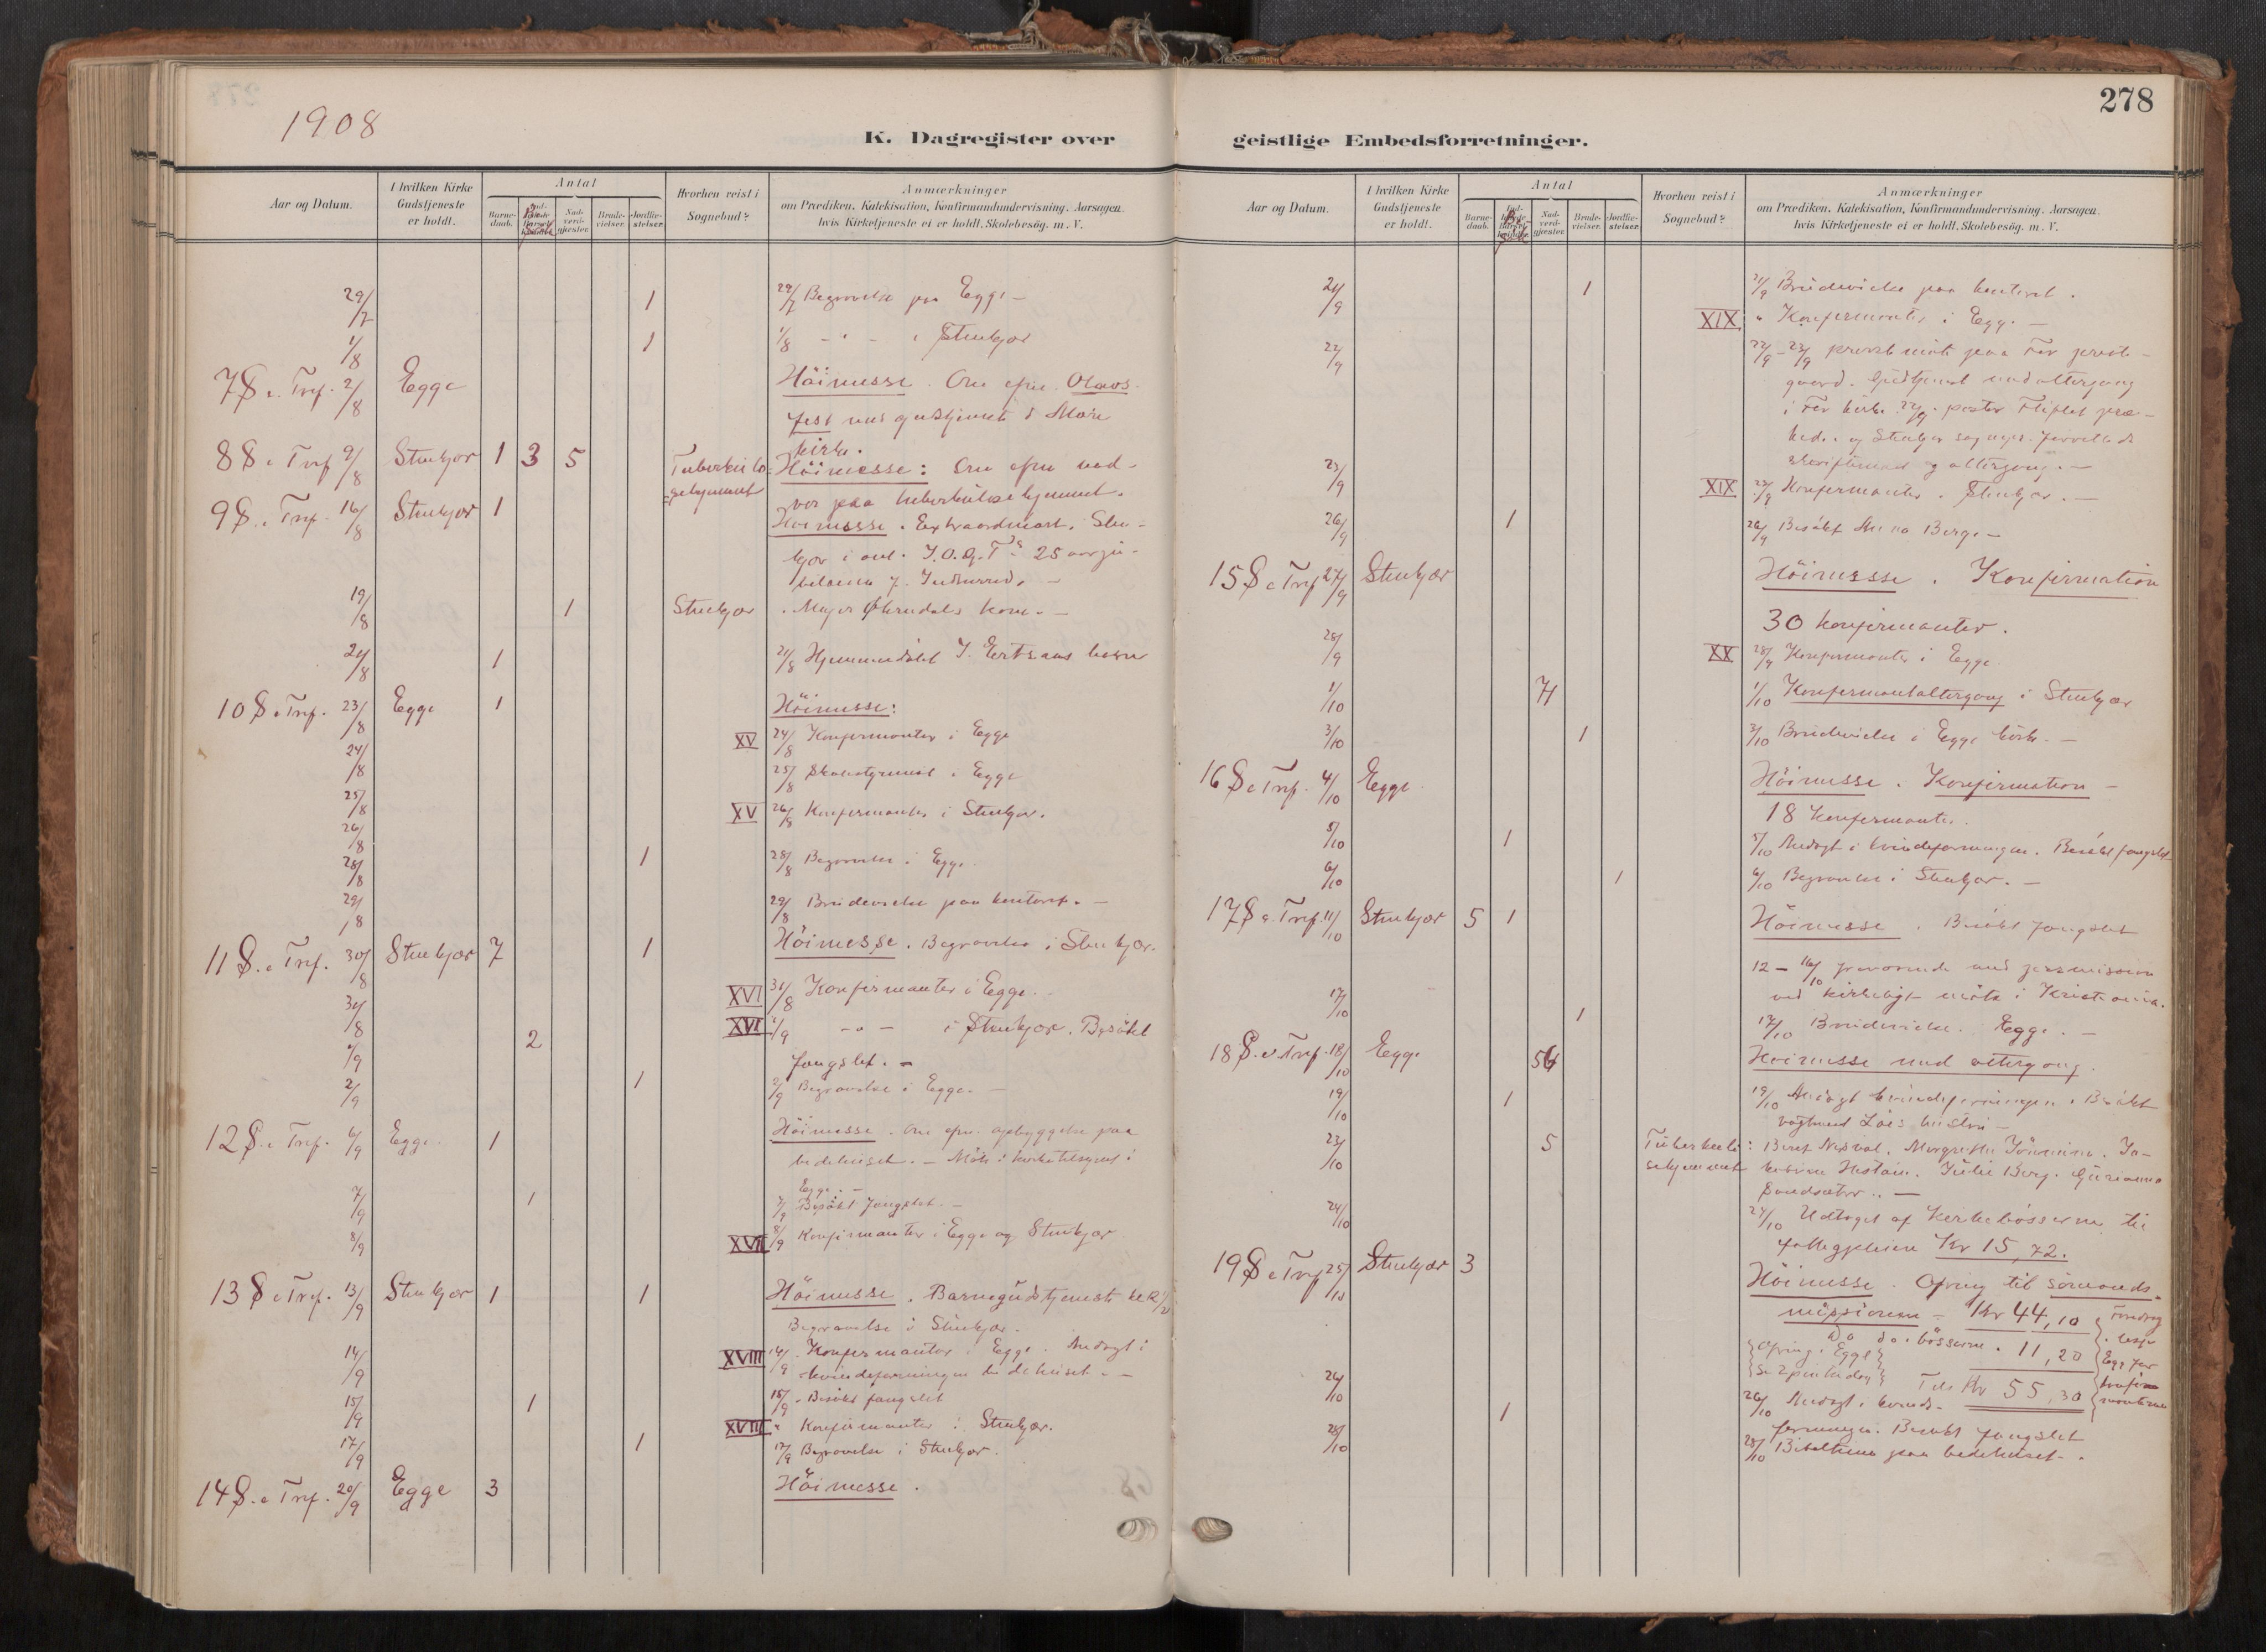 278
1908
K. Dagregister over geistlige Embedsforretninger.
Aar og Datum.
I hvilken Kirke Gudstjeneste er holdt.
Antal
Barnedaab.
Nadverdgjæster.
Brudevielser.
Jordfæstelser.
Hvorhen reist i Sognebud?
Anmærkninger om Prædiken, Katekisation, Konfirmandundervisning. Aarsagen. hvis Kirketjeneste ei er holdt. Skolebesög. m. V.
29/7 1 29/7 Begravelse paa Egge –
1/8 1 1/8 – " – i Stenkjær
7 S. e. Tref. 2/8 Egge Höimesse. Om efm. Olavs-
fest med gudstjeneste i Mære
kirke.
8 S. e Tref 9/8 Stenkjær 1 3 5 Tuberkulo- Höimesse: Om efm nad-
sehjemmet ver paa tuberkulosehjemmet.
9 S. e Tref. 16/8 Stenkjær 1 Höimesse. Extraordinært. Sten-
kjær i anl. I.O.G.T's 25 aarsju-
19/8 1 Stenkjær
21/8 1 21/8 Hjemmedöbt
10 S e Tref. 23/8 Egge 1 Höimesse:
24/8 XV 24/8 Konfirmanter i Egge
25/8 25/8 i Egge
26/8 XV 26/8 Konfirmanter i Stenkjær.
28/8 1 28/8 Begravelse i Egge.
29/8 29/8 Brudevielse paa kontoret. –
11 S. e Tref. 30/8 Stenkjær 7 1 Höimesse. Begravelse i Stenkjær.
31/8 XVI 31/8 Konfirmanter i Egge.
1/9 2 XVI 1/9 – " – i Stenkjær. Besökt
fængslet. –
2/9 1 2/9 Begravelse i Egge. –
12 S. e Tref. 6/9 Egge. 1 Höimesse. Om efm. opbyggelse paa
bedehuset. – Möte i kirketilsynet i
Egge. –
7/9 1 7/9 Besökt fængslet. –
8/9 XVII 8/9 Konfirmanter i Egge og Stenkjær
13 S e Tref. 13/9 Stenkjær 1 1 Höimesse. Barnegudstjeneste
Begravelse i Stenkjær.
14/9 XVIII 14/9 Konfirmanter i Egge. Andagt i
kvindeforeningen bedehuset. –
15/9 1 15/9 Besökt fængslet
XVIII " Konfirmanter i Stenkjær.
17/9 1 17/9 Begravelse i Stenkjær.
14 S. e Tref. 20/9 Egge 3 Höimesse.
Aar og Datum.
I hvilken Kirke Gudstjeneste er holdt.
Antal
Barnedaab.
Nadverdgjæster.
Brudevielser.
Jordfæstelser.
Hvorhen reist i Sognebud?
Anmærkninger om Prædiken, Katekisation, Konfirmandundervisning. Aarsagen. hvis Kirketjeneste ei er holdt. Skolebesög. m. V.
21/9 1 21/9 Brudevielse paa kontoret.
XIX " Konfirmanter i Egge –
22/9 22/9–23/9 provstmöte paa For preste-
gaard. Gudstjenest med altergang
i For kirke 22/9.
skriftemaal og altergang. –
23/9 XIX 23/9 Konfirmanter i Stenkjær. –
26/9 1 26/9 Besökt Anna Berg. –
15 S e Tref 27/9 Stenkjær Höimesse. Konfirmation
30 konfirmanter.
28/9 XX 28/9 Konfirmanter i Egge
1/10 71 1/10 Konfirmantaltergang i Stenkjær
3/10 1 3/10 Brudevielse i Egge kirke. –
16 S e Tref. 4/10 Egge Höimesse. Konfirmation –
18 Konfirmanter.
5/10 1 5/10 Andagt i kvindeforeningen. Besökt fængslet
6/10 1 6/10 Begravelse i Stenkjær. –
17 S e. Tref. 11/10 Stenkjær 5 1 Höimesse. Besökt fængslet
12 – 16/10 fraværende med permission
ved kirkeligt möte i Kristiania.
17/10 1 17/10 Brudevielse. Egge. –
18 S. e Tref. 18/10 Egge 56 Höimesse med altergang.
19/10 1 19/10 Andagt kvindeforeningen. Besökt
hustru –
23/10 5 Tuberkulo- : Berit
sehjemmet
24/10 24/10 Udtaget af Kirkebösserne til
Kr 15,72.
19 S e Tref 25/10 Stenkjær 3 Höimesse. Ofring til sömands-
missionen – Kr 44,10
Do do. bösserne. 11,20
Tils Kr 55,30
26/10 1 26/10 Andagt i kvinde-
foreningen. Besökt fængslet
28/10 28/10 Bibeltime paa bedehuset.